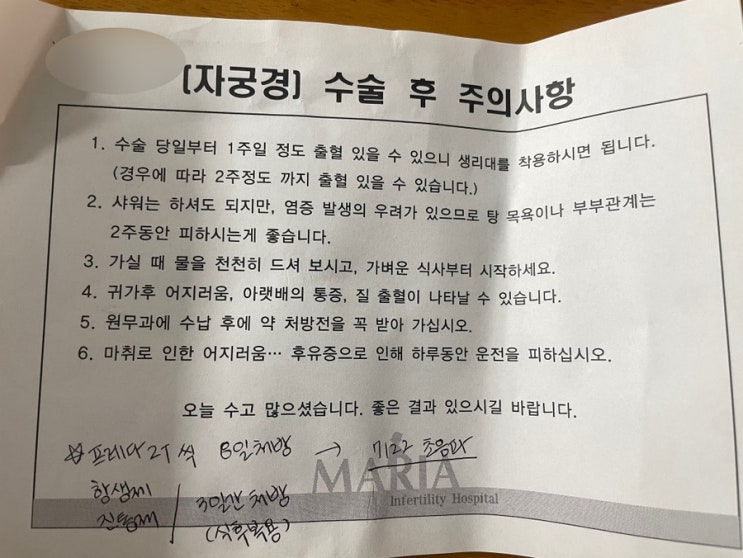 (자궁경) 수술 후 주의사항
1. 수술 당일부터 1주일 정도 출혈 있을 수 있으니 생리대를 착용하시면 됩니다.
(경우에 따라 2주정도 까지 출혈 있을 수 있습니다.)
2. 샤워는 하셔도 되지만, 염증 발생의 우려가 있으므로 탕 목욕이나 부부관계는
2주동안 피하시는게 좋습니다.
3. 가실 때 물을 천천히 드셔 보시고, 가벼운 식사부터 시작하세요.
4. 귀가후 어지러움, 아랫배의 통증, 질 출혈이 나타날 수 있습니다.
5. 원무과에 수납 후에 약 처방전을 꼭 받아 가십시오.
6. 마취로 인한 어지러움… 후유증으로 인해 하루동안 운전을 피하십시오.
오늘 수고 많으셨습니다. 좋은 결과 있으시길 바랍니다.
프레다 2T 씩 8일처방 → 7/22 초음파
MARIA
Infertility Hospital
항생제
진통제
3일간 처방
(식후복용)